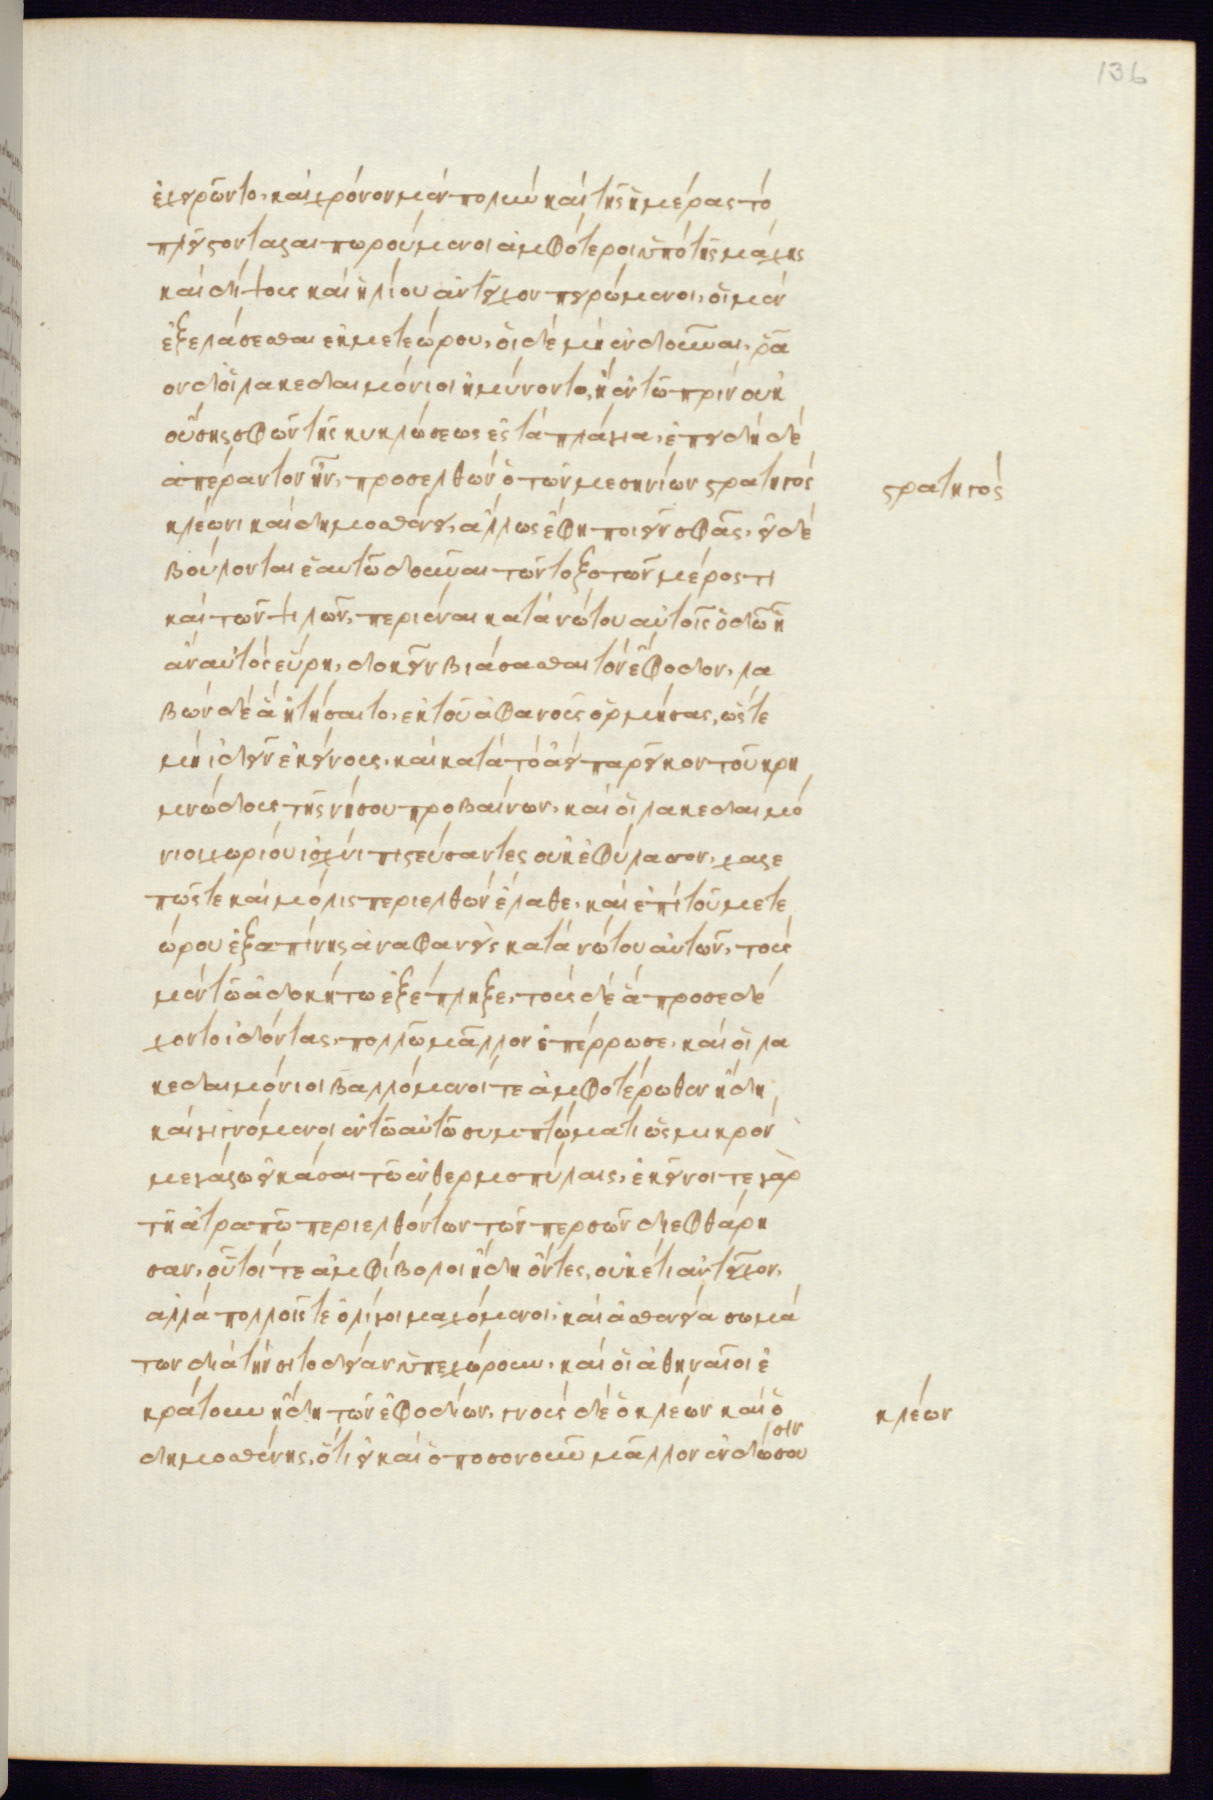 ἐχειρῶντο, καὶ χρόνον μὲν πολὺν καὶ τῆς ἡμέρας τὸ
πλεῖστον ταλαιπωρούμενοι ἀμφότεροι ὑπὸ τῆς μάχης
καὶ δίψους καὶ ἡλίου ἀντεῖχον πειρώμενοι, οἱ μὲν
ἐξελάσεσθαι ἐκ μετεώρου, οἱ δὲ μὴ ἐνδοῦναι, ῥᾶ
ον δ' οἱ λακεδαιμόνιοι ἠμύνοντο, ἢ ἐν τῶ πρὶν οὐκ
οὔσης σφῶν τῆς κυκλώσεως ἐς τὰ πλάγια, ἐπειδὴ δὲ
ἀπέραντον ἦν, προσελθὼν ὁ τῶν μεσηνίων στρατηγὸς
στρατηγὸς
κλέωνι καὶ δημοσθένει, ἄλλως ἔφη ποιεῖν σφᾶς, εἰ δὲ
βούλονται ἑαυτῶ δοῦναι τῶν τοξοτῶν μέρος τι
καὶ τῶν ψιλῶν, περιέναι κατὰ νώτου αὐτοῖς ὁδῶ ἧ
ἂν αὐτὸς εὕρη, δοκεῖν βιάσασθαι τὴν ἔφοδον, λα
βὼν δὲ ἃ ἠτήσατο, ἐκ τοῦ ἀφανοῦς ὁρμήσας, ὥστε
μὴ ἰδεῖν ἐκείνους, καὶ κατὰ τὸ ἀεὶ παρεῖκον τοῦ κρη
μνώδους τῆς νήσου προβαίνων, καὶ οἱ λακεδαιμό
νιοι χωρίου ἰσχύι πιστεύσαντες οὐκ ἐφύλασον, χαλε
πῶς τε καὶ μόλις περιελθὼν ἔλαθε, καὶ ἐπὶ τοῦ μετε
ώρου ἐξαπίνης ἀναφανεὶς κατὰ νώτου αὐτῶν, τοὺς
μὲν τῶ ἀδοκήτω ἐξέπληξε, τοὺς δὲ ἃ προσεδέ
χοντο ἰδόντας, πολλῶ μᾶλλον ἐπέρρωσε, καὶ οἱ λα
κεδαιμόνιοι βαλλόμενοί τε ἀμφοτέρωθεν ἤδη,
καὶ γιγνόμενοι ἐν τῶ αὐτῶ συμπτώματι ὡς μικρὸν
μεγάλω εἰκάσαι τῶ ἐν θερμοπύλαις, ἐκεῖνοι τε γὰρ
τῆ ἀτραπῶ περιελθόντων τῶν περσῶν διεφθάρη
σαν, οὗτοί τε ἀμφίβολοι ἤδη ὄντες, οὐκέτι ἀντεῖχον,
ἀλλὰ πολλοῖς τε ὀλίγοι μαχόμενοι, καὶ ἀσθενεία σωμά
των διὰ τὴν σιτοδείαν ὑπεχώρουν, καὶ οἱ ἀθηναῖοι ἐ
κράτουν ἤδη τῶν ἐφόδων, γνοὺς δὲ ὁ κλέων καὶ ὁ
κλέων
δημοσθένης, ὅτι εἰ καὶ ὁποσονοῦν μᾶλλον ἐνδώσου
σιν